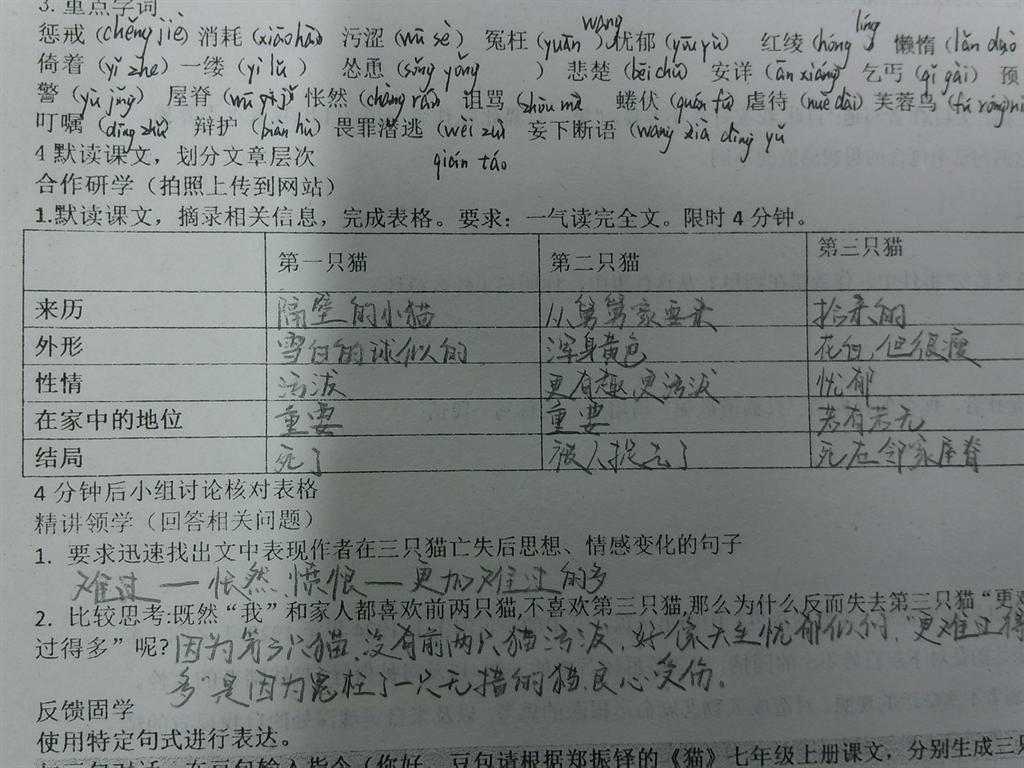 3. 重点字词
惩戒（chěng jiè）消耗（xiāo hào）污涩（wū sè）冤枉（yuān wang）忧郁（yōu yù）红绫（hóng líng）懒惰（lǎn duò
倚着（yǐ zhe）一缕（yì lǚ）怂恿（sǒng yǒng）悲楚（bēi chǔ）安详（ān xiáng）乞丐（qǐ gài）预
警（yù jǐng）屋脊（wū jǐ）怅然（chàng rán）诅骂（zhòu mà 蜷伏（quán fú）虐待（nüè dài）芙蓉鸟（fú róng niǎo
叮嘱（dīng zhǔ）辩护（biàn hù）畏罪潜逃（wèi zuì qián táo 妄下断语（wàng xià duàn yǔ
4 默读课文，划分文章层次
合作研学（拍照上传到网站）
1.默读课文，摘录相关信息，完成表格。要求：一气读完全文。限时 4 分钟。
第一只猫 第二只猫 第三只猫
来历 隔壁的小猫 从舅舅家要来 拾来的
外形 雪白的球似的 浑身黄色 花白，但很瘦
性情 活泼 更有趣，更活泼 忧郁
在家中的地位 重要 重要 若有若无
结局 死了 被人捉去了 死在邻家屋脊
4 分钟后小组讨论核对表格
精讲领学（回答相关问题）
1. 要求迅速找出文中表现作者在三只猫亡失后思想、情感变化的句子
难过—怅然、愤恨—更加难过的多
2. 比较思考:既然“我”和家人都喜欢前两只猫,不喜欢第三只猫,那么为什么反而失去第三只猫“更难
过得多”呢? 因为第三只猫，没有前两只猫活泼，好像天生忧郁似的，“更难过得
多”是因为冤枉了一只无措的猫，良心受伤。
反馈固学
使用特定句式进行表达。
豆包输入指令（你好，豆包请根据郑振铎的《猫》七年级上册课文，分别生成三只